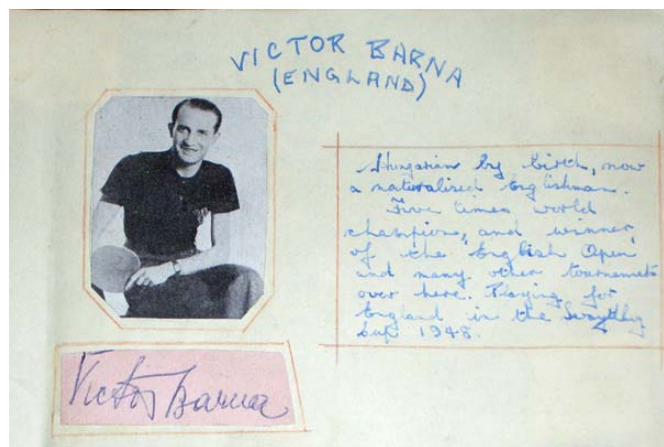 VICTOR BARNA
(ENGLAND)
Hungarian by birth, now
a naturalised Englishman.
Five times world
champion, and winner
of the English Open
and many other tournaments
over here. Playing for
England in the Swaythling
Cup 1948.
Victor Barna